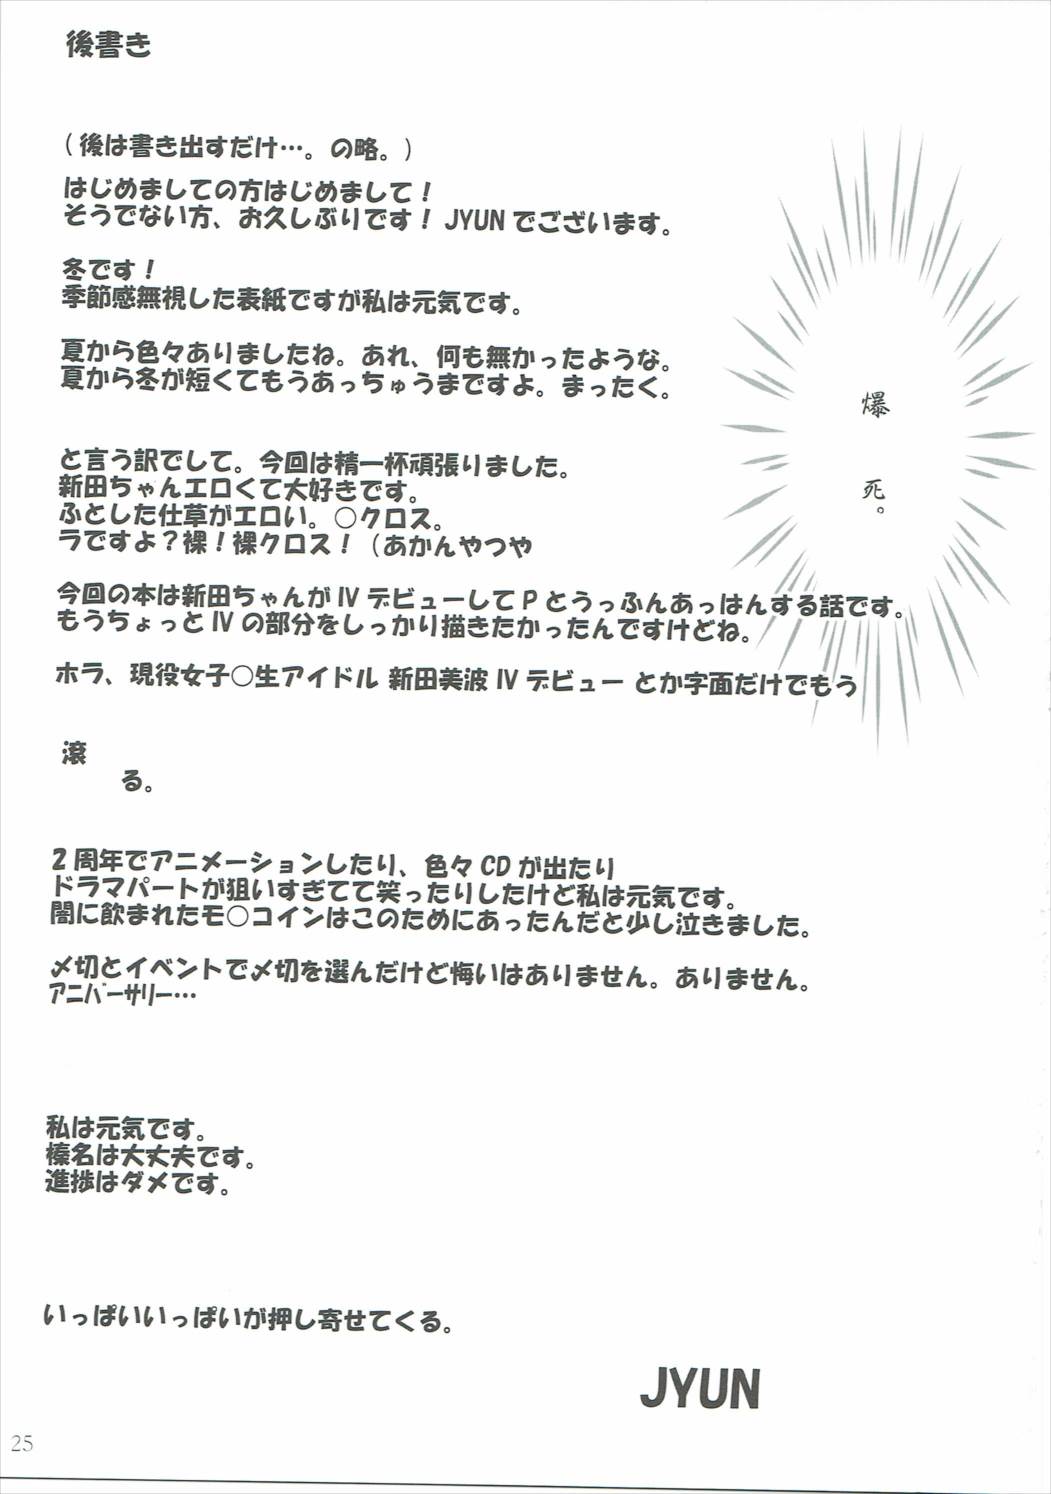 後書き
（後は書き出すだけ…。の略。）
はじめましての方はじめまして！
そうでない方、お久しぶりです！JYUNでございます。
冬です！
季節感無視した表紙ですが私は元気です。
夏から色々ありましたね。あれ、何も無かったような。
夏から冬が短くてもうあっちゅうまですよ。まったく。
と言う訳でして。今回は精一杯頑張りました。
新田ちゃんエロくて大好きです。
ふとした仕草がエロい。○クロス。
ラですよ？裸！裸クロス！（あかんやつや
今回の本は新田ちゃんがIVデビューしてPとうっふんあっはんする話です。
もうちょっとIVの部分をしっかり描きたかったんですけどね。
ホラ、現役女子○生アイドル 新田美波IVデビュー とか字面だけでもう
滾
る。
爆
死。
2周年でアニメーションしたり、色々CDが出たり
ドラマパートが狙いすぎてて笑ったりしたけど私は元気です。
闇に飲まれたモ○コインはこのためにあったんだと少し泣きました。
〆切とイベントで〆切を選んだけど悔いはありません。ありません。
ｱﾆﾊﾞｰｻﾘｰ…
私は元気です。
榛名は大丈夫です。
進捗はダメです。
いっぱいいっぱいが押し寄せてくる。
JYUN
25